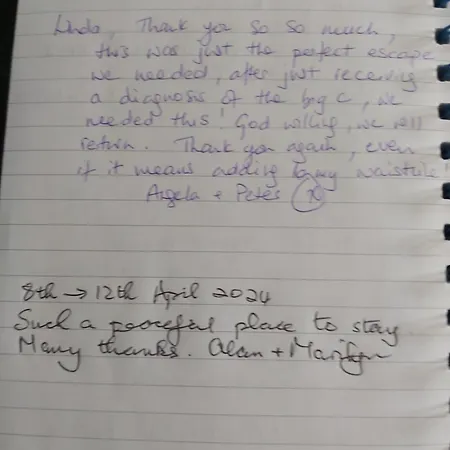 Linda, Thank you so so much,
this was just the perfect escape
we needed, after just receiving
a diagnosis of the big C, we
needed this! God willing, we will
return. Thank you again, even
if it means adding to my waistline!
Angela + Peter x
8th → 12th April 2024
Such a peaceful place to stay
Many thanks. Alan + Marilyn